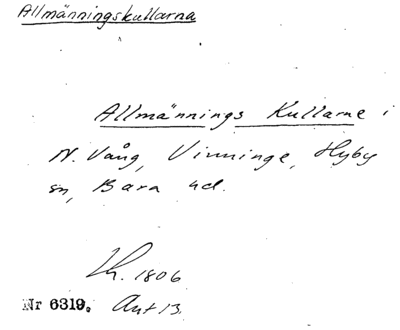 Allmänningskullarna
Allmännings Kullarne i
N. Vång, Vinninge, Hyby
sn, Bara hd.
Lh. 1806
Nr 6319. Akt 13.